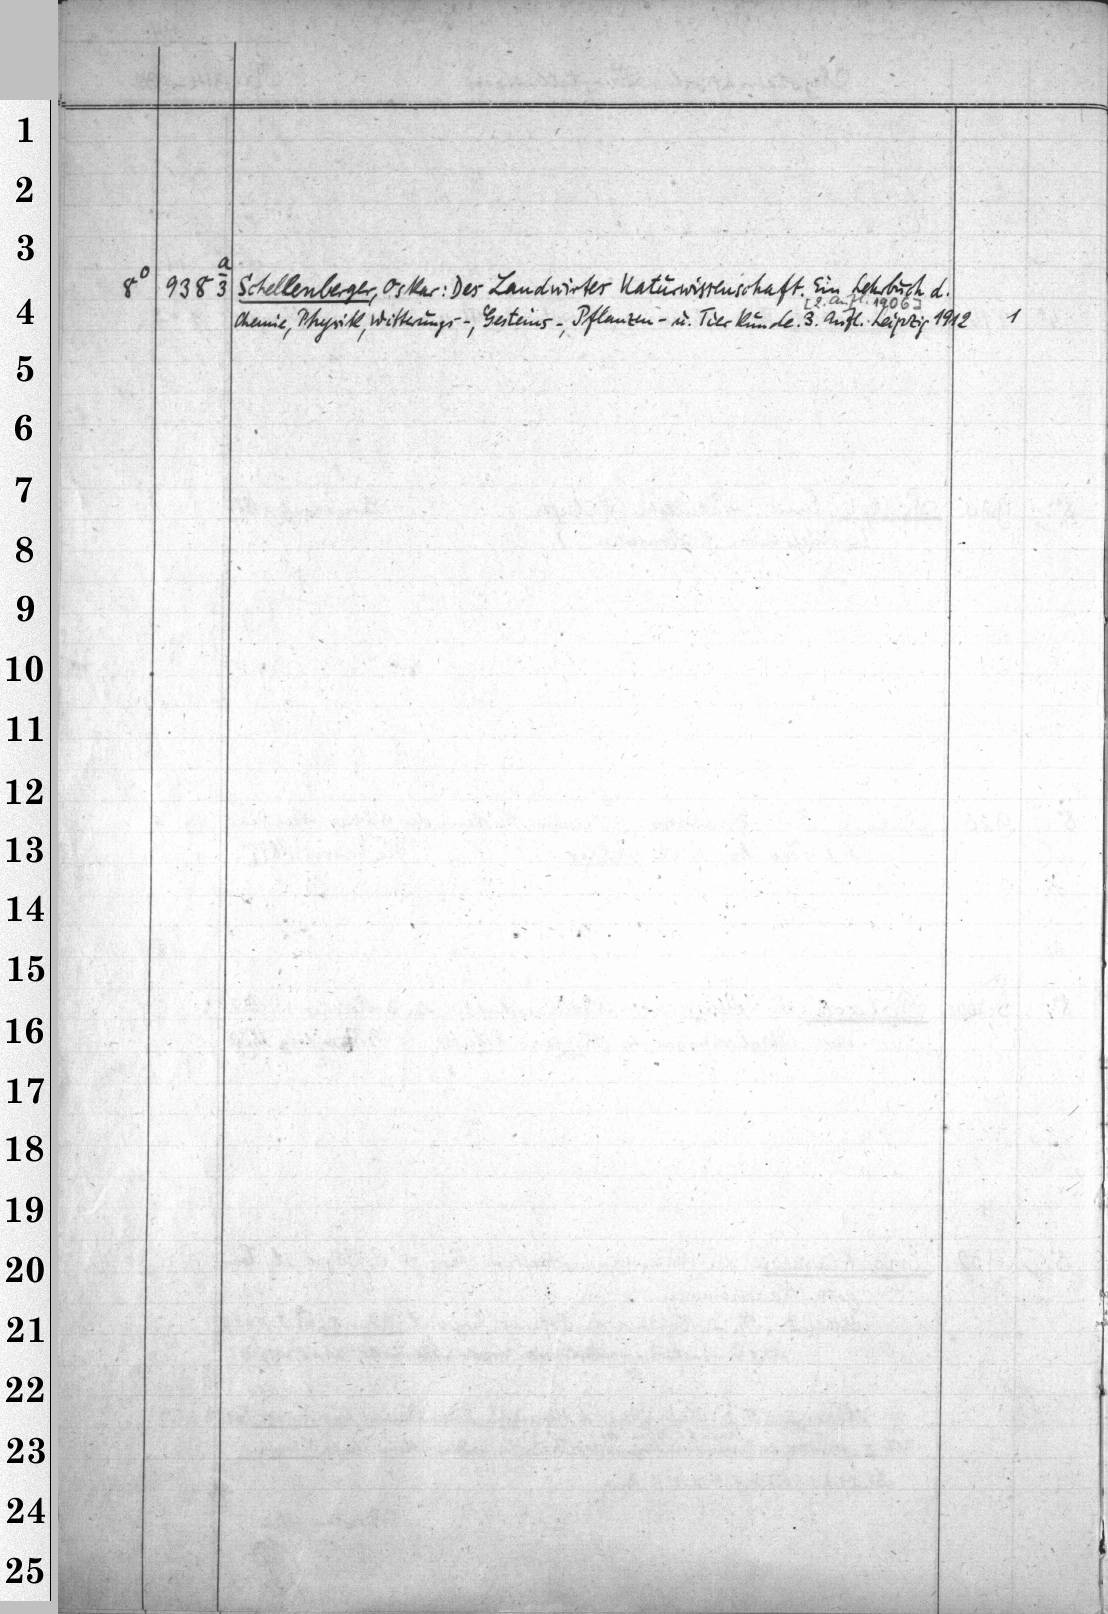 1
2
3
8° 938 a/3 Schellenberger, Oskar: Des Landwirtes Naturwissenschaft. Ein Lehrbuch d.
[2. Aufl. 1906]
4
Chemie, Physik, Witterungs-, Gesteins-, Pflanzen- u. Tierkunde. 3. Aufl. Leipzig 1912 1
5
6
7
8
9
10
11
12
13
14
15
16
17
18
19
20
21
22
23
24
25